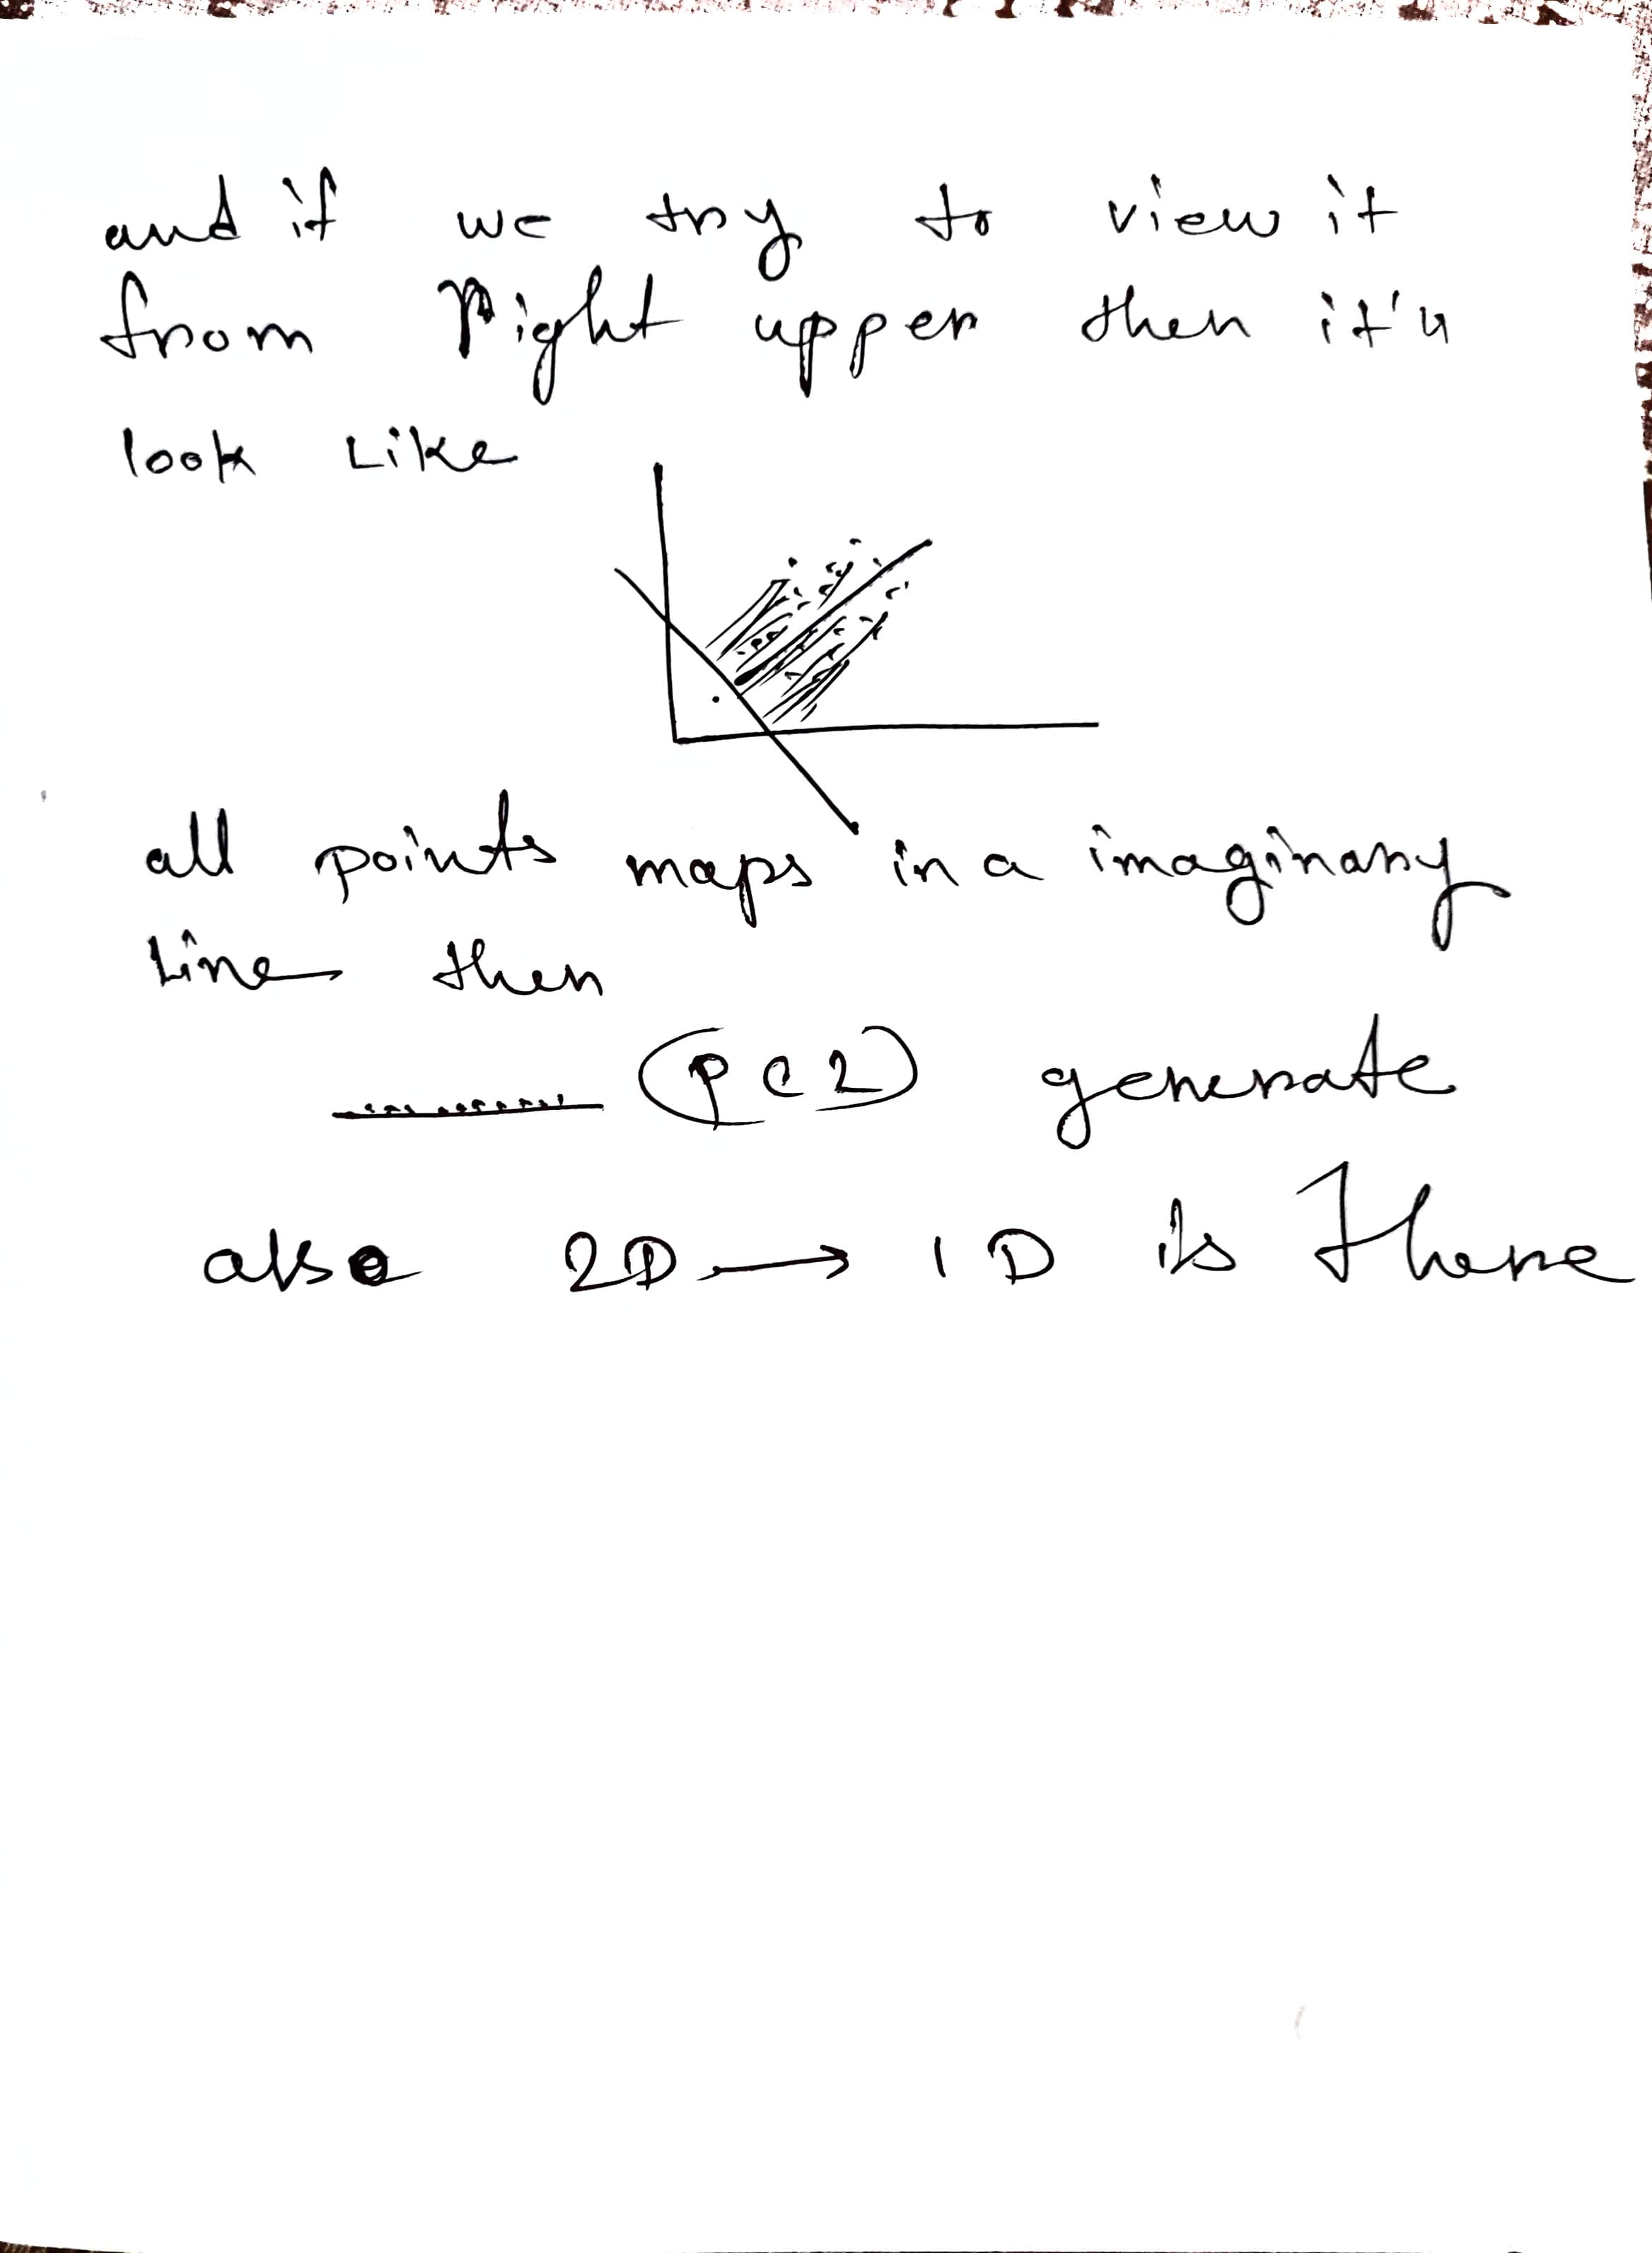 and if we try to view it
from Right upper then it'll
look Like
all points maps in a imaginary
Line then
(PC2) generate
also 2D → 1D is there